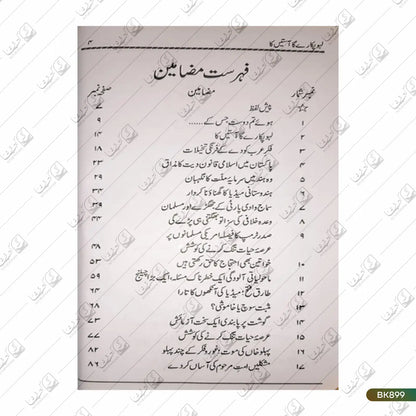 لہو پکارے گا آستیں کا ۴
فہرست مضامین
نمبر شمار مضامین صفحہ نمبر
پیش لفظ ۷
۱ ہوئے تم دوست جس کے...... ۹
۲ لہو پکارے گا آستیں کا ۱۴
۳ فکر عرب کو دے کے فرنگی تخیلات ۱۸
۴ پاکستان میں اسلامی قانون دیت کا مذاق ۲۳
۵ وہ ہند میں سرمایۂ ملت کا نگہبان ۲۹
۶ ہندوستانی میڈیا کا گھناؤنا کردار ۳۴
۷ سماج وادی پارٹی کے جھگڑے اور مسلمان ۳۹
۸ وعدہ خلافی کی سزا تو بھگتنی ہی پڑے گی ۴۴
۹ صدر ٹرمپ کا فیصلہ امریکی مسلمانوں پر
عرصۂ حیات تنگ کرنے کی کوشش ۴۸
۱۰ خواتین بھی احتجاج کا حق رکھتی ہیں ۵۳
۱۱ ماحولیاتی آلودگی ایک خطرناک مسئلہ، ایک بڑا چیلنج ۵۹
۱۲ طارق فتح: میڈیا کی آنکھوں کا تارا ۶۴
۱۳ مثبت سوچ یا خاموشی؟ ۶۸
۱۴ گوشت پر پابندی ایک سخت آزمائش ۷۳
۱۵ عرصۂ حیات تنگ کرنے کی کوشش ۷۷
۱۶ پہلو خاں کی موت: غور و فکر کے چند پہلو ۸۲
۱۷ مشکلیں امت مرحوم کی آساں کر دے ۸۶
BK899